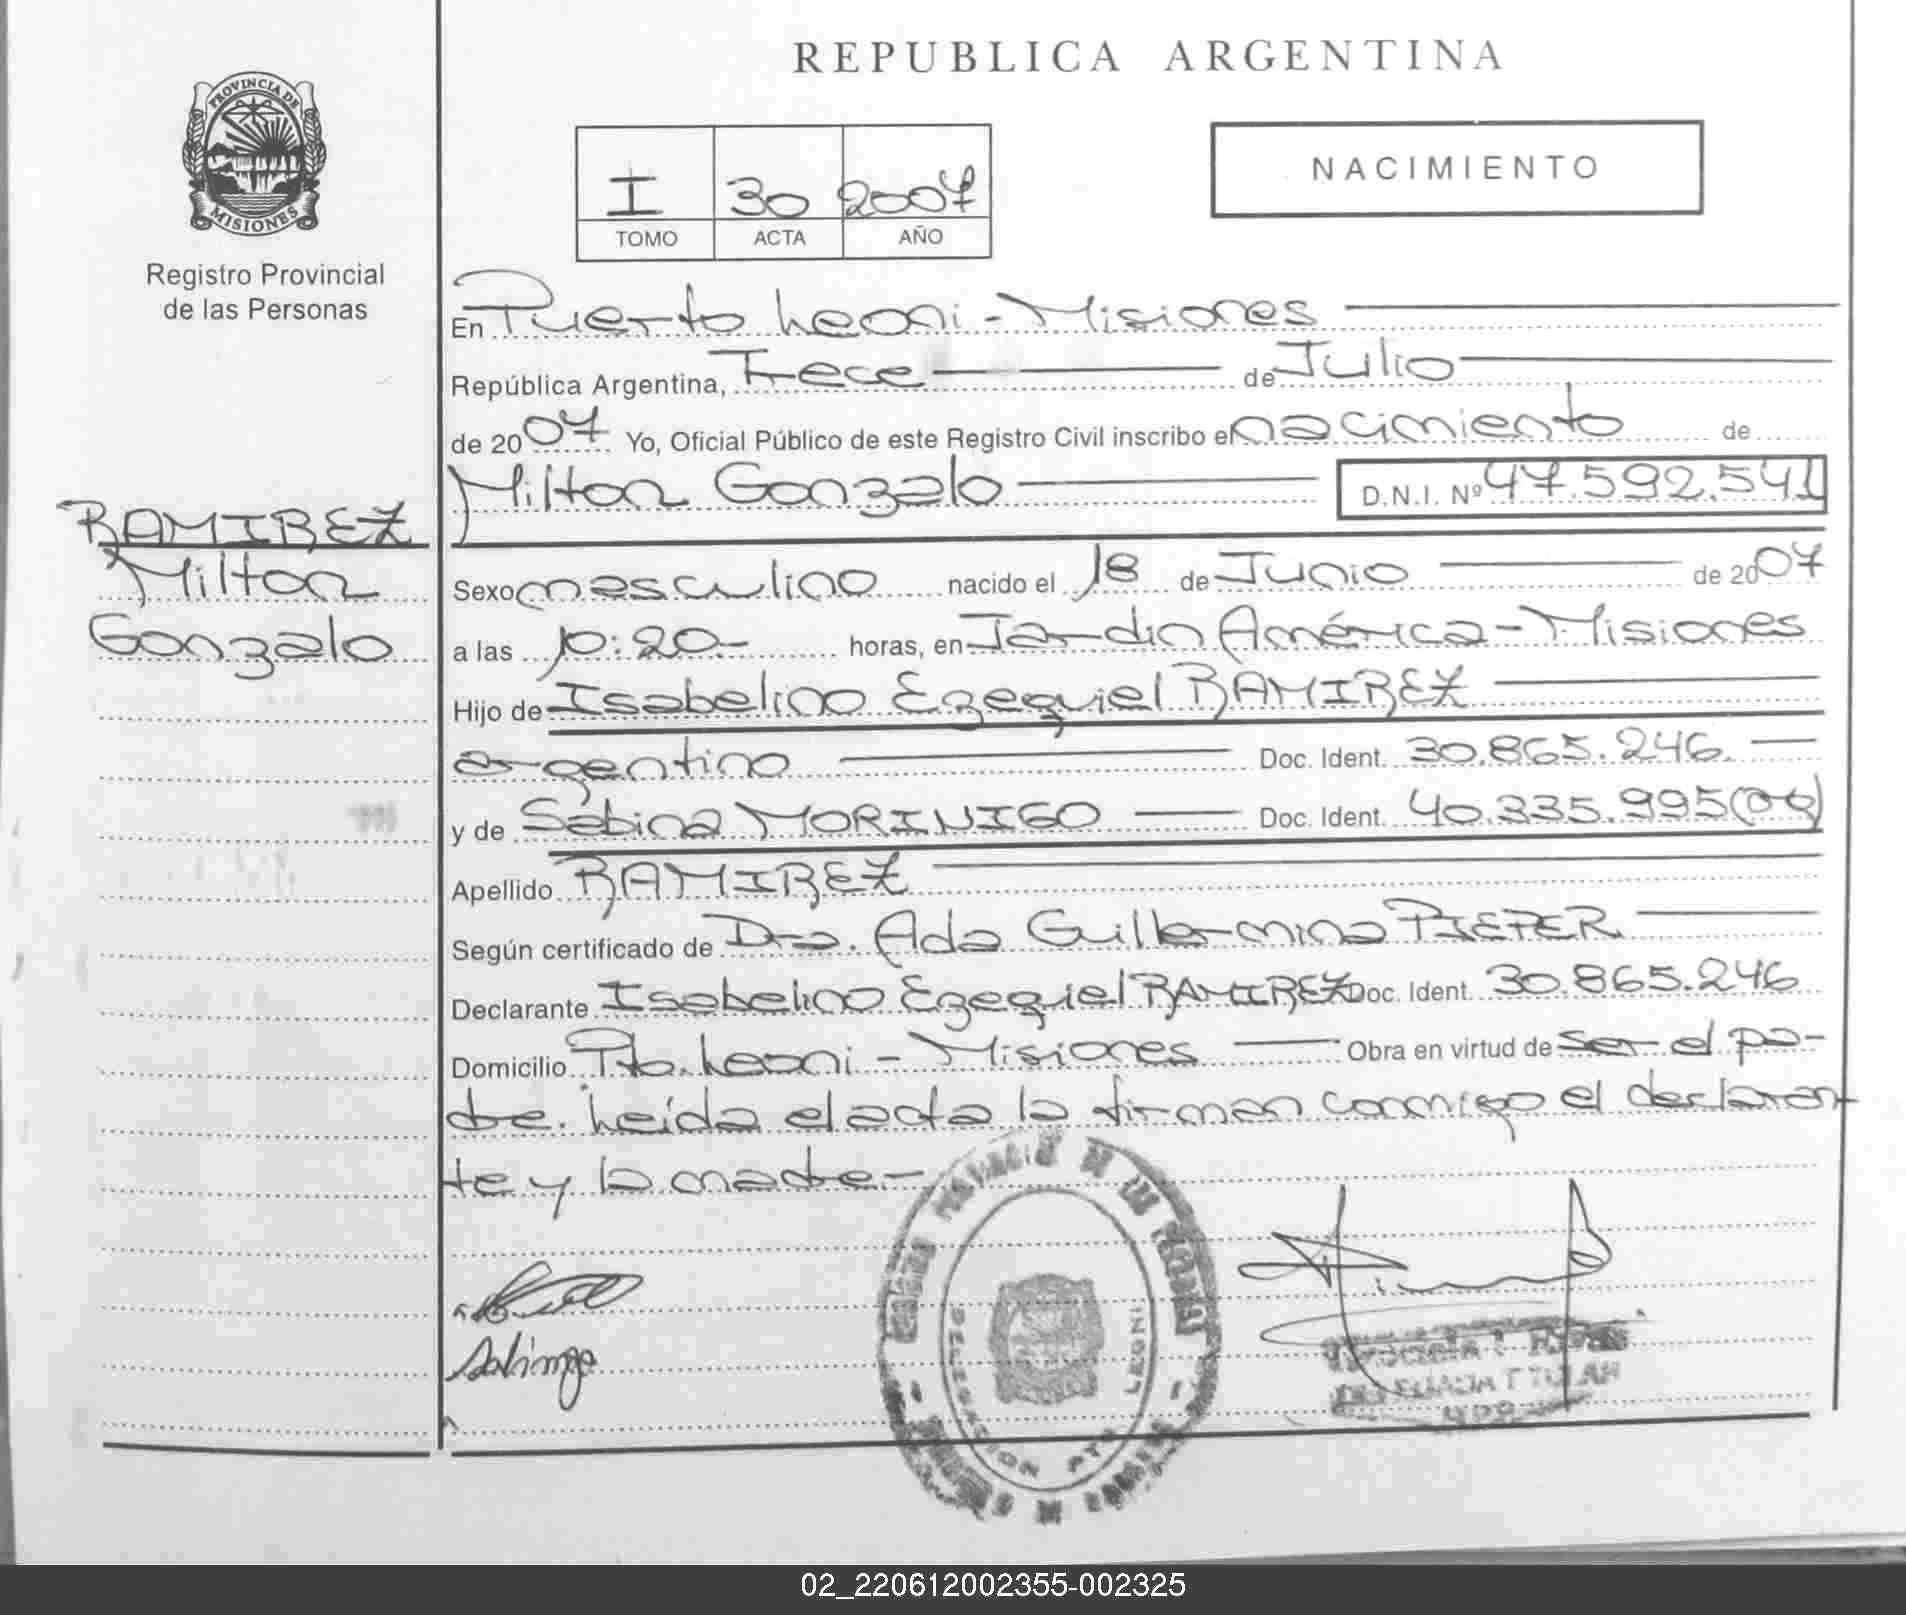 REPUBLICA ARGENTINA
PROVINCIA DE
MISIONES
Registro Provincial
de las Personas
NACIMIENTO
I 30 2007
TOMO ACTA AÑO
En Puerto Leoni - Misiones
República Argentina, Trece de Julio
de 2007 Yo, Oficial Público de este Registro Civil inscribo el nacimiento de
Milton Gonzalo D.N.I. Nº 47.592.541
RAMIREZ
Milton
Gonzalo
Sexo masculino nacido el 18 de Junio de 2007
a las 10:20.- horas, en Jardin América - Misiones
Hijo de Isabelino Ezequiel RAMIREZ
argentino Doc. Ident. 30.865.246.
y de Sabina MORINIGO Doc. Ident. 40.335.995
Apellido RAMIREZ
Según certificado de Dra. Ada Guillermina PIEPER
Declarante Isabelino Ezequiel RAMIREZ Doc. Ident. 30.865.246
Domicilio Pto. Leoni - Misiones Obra en virtud de ser el pa-
dre. Leída el acta la firman conmigo el declaran-
te y la madre -
DELEGACION PTO LEONI
02_220612002355-002325